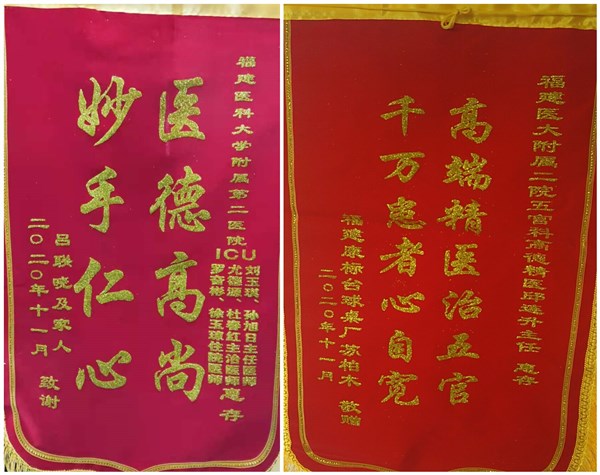 福建医科大学附属第二医院
ICU
刘玉琪、孙旭日主任医师
尤德源、杜春红主治医师
徐玉琼住院医师
惠存
医德高尚
妙手仁心
吕联晓及家人 致谢
二〇二〇年十一月
福建医大附属二院五官科高德精医邱连升主任 惠存
高端精医治五官
千万患者心自宽
福建康标台球桌厂苏柏木 敬赠
二〇二〇年十一月